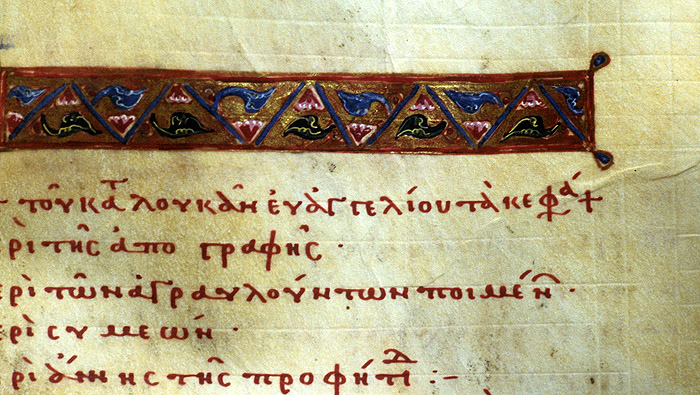 τοῦ κα^τ λουκᾶν ἐυἀγγελίου τὰ κεφά +
ερὶ τῆς ἀπογραφῆς ·
ερὶ τῶν ἀγραυλούντων ποιμέν ·
ερὶ συμεών ·
ερὶ ἄννης τῆς προφήτιδ :-